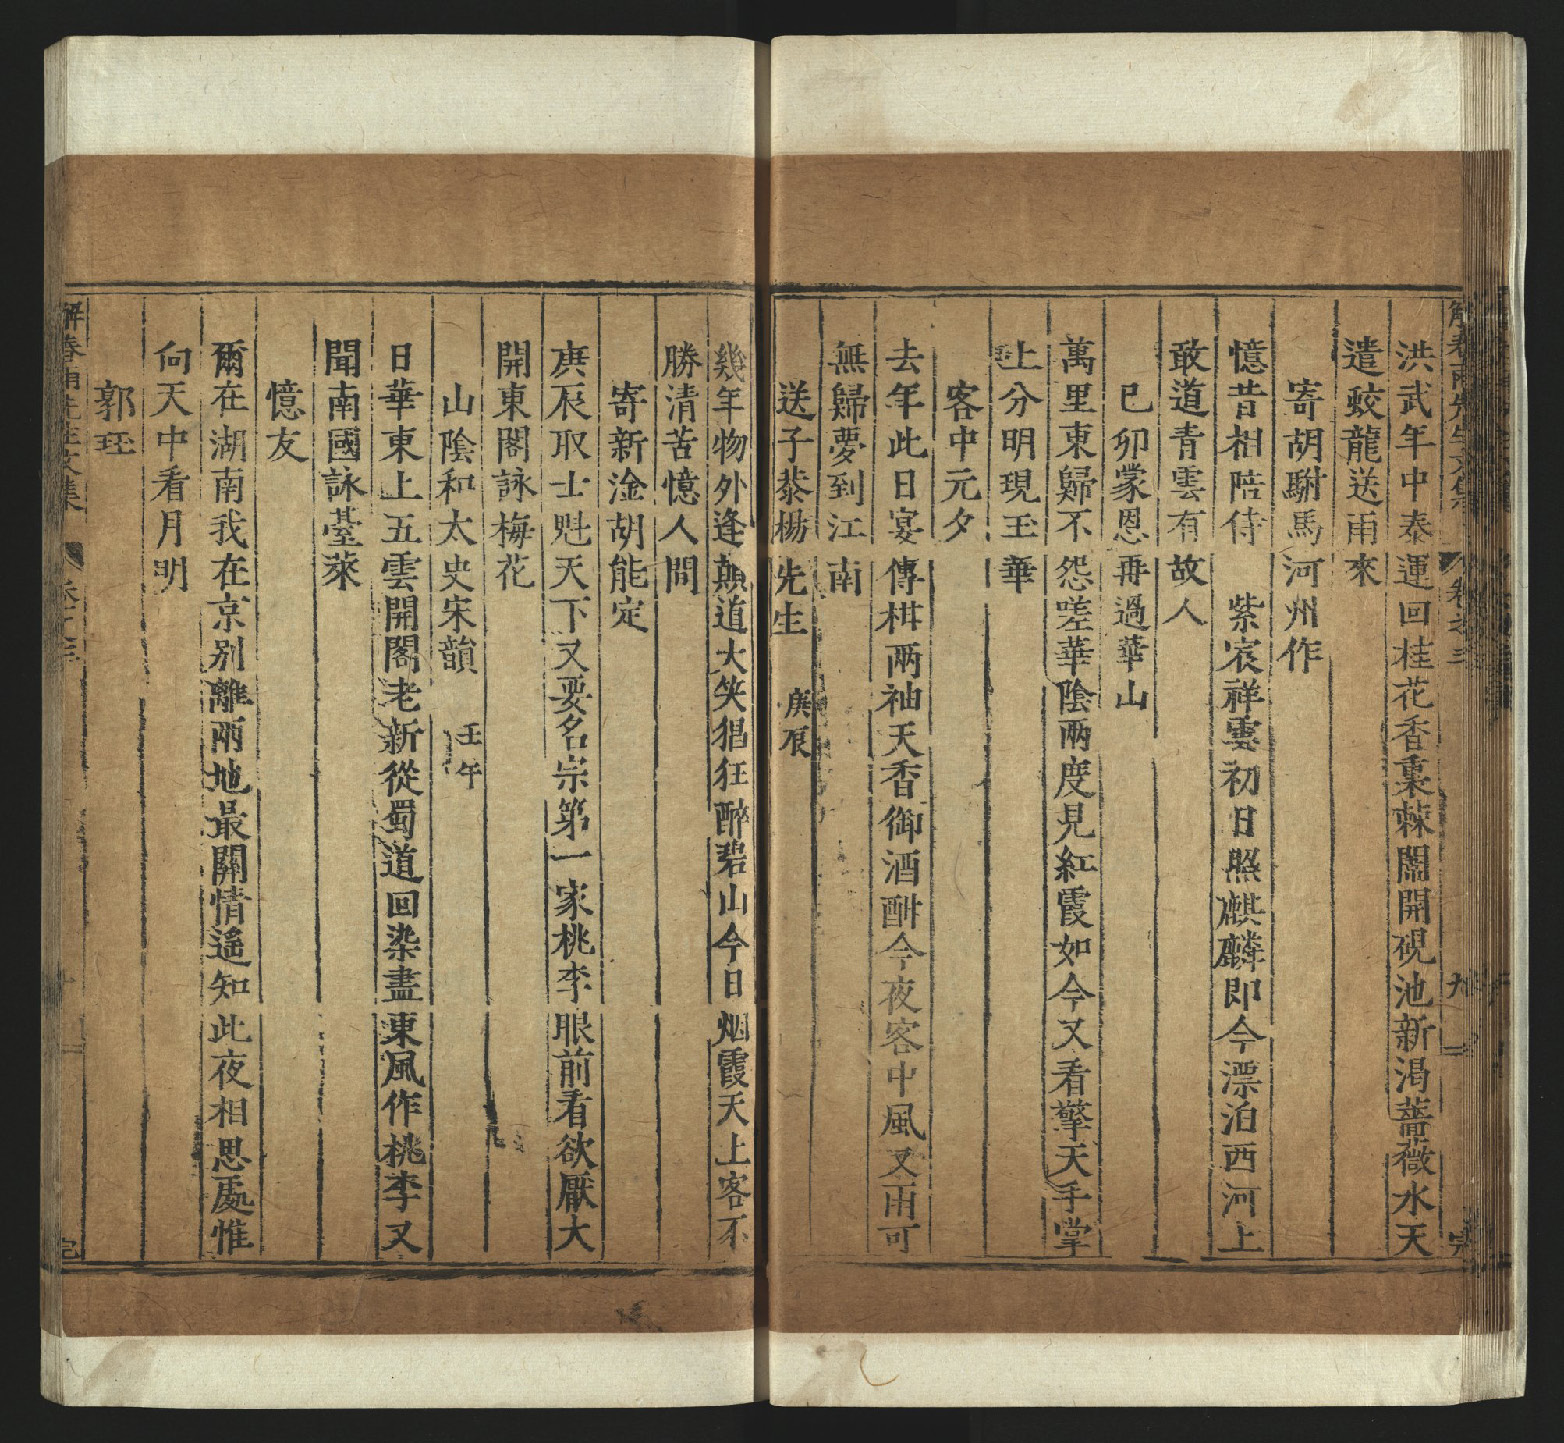 洪武年中泰運回桂花香裏棘闈開硯池新渴薔薇水天
遣蛟龍送雨來
寄胡駙馬河州作
憶昔相陪侍紫宸祥雲初日照麒麟即今漂泊西河上
敢道青雲有故人
巳卯蒙恩再過華山
萬里東歸不怨嗟華陰兩度見紅霞如今又看擎天手掌
上分明現玉華
客中元夕
去年此日宴傳柑两袖天香御酒酣今夜客中風又雨可
無歸夢到江南
送子恭楊先生 庚辰
幾年物外逢顛道大笑猖狂醉碧山今日烟霞天上客不
勝清苦憶人間
寄新淦胡能定
庚辰取士魁天下又要名宗第一家桃李眼前看欲厭大
開東閣詠梅花
山陰和太史宋韻 壬午
日華東上五雲開閣老新從蜀道回染盡東風作桃李又
聞南國詠臺萊
憶友
爾在湖南我在京别離兩地最關情遙知此夜相思處惟
向天中看月明
郭珏
解春雨先生文集